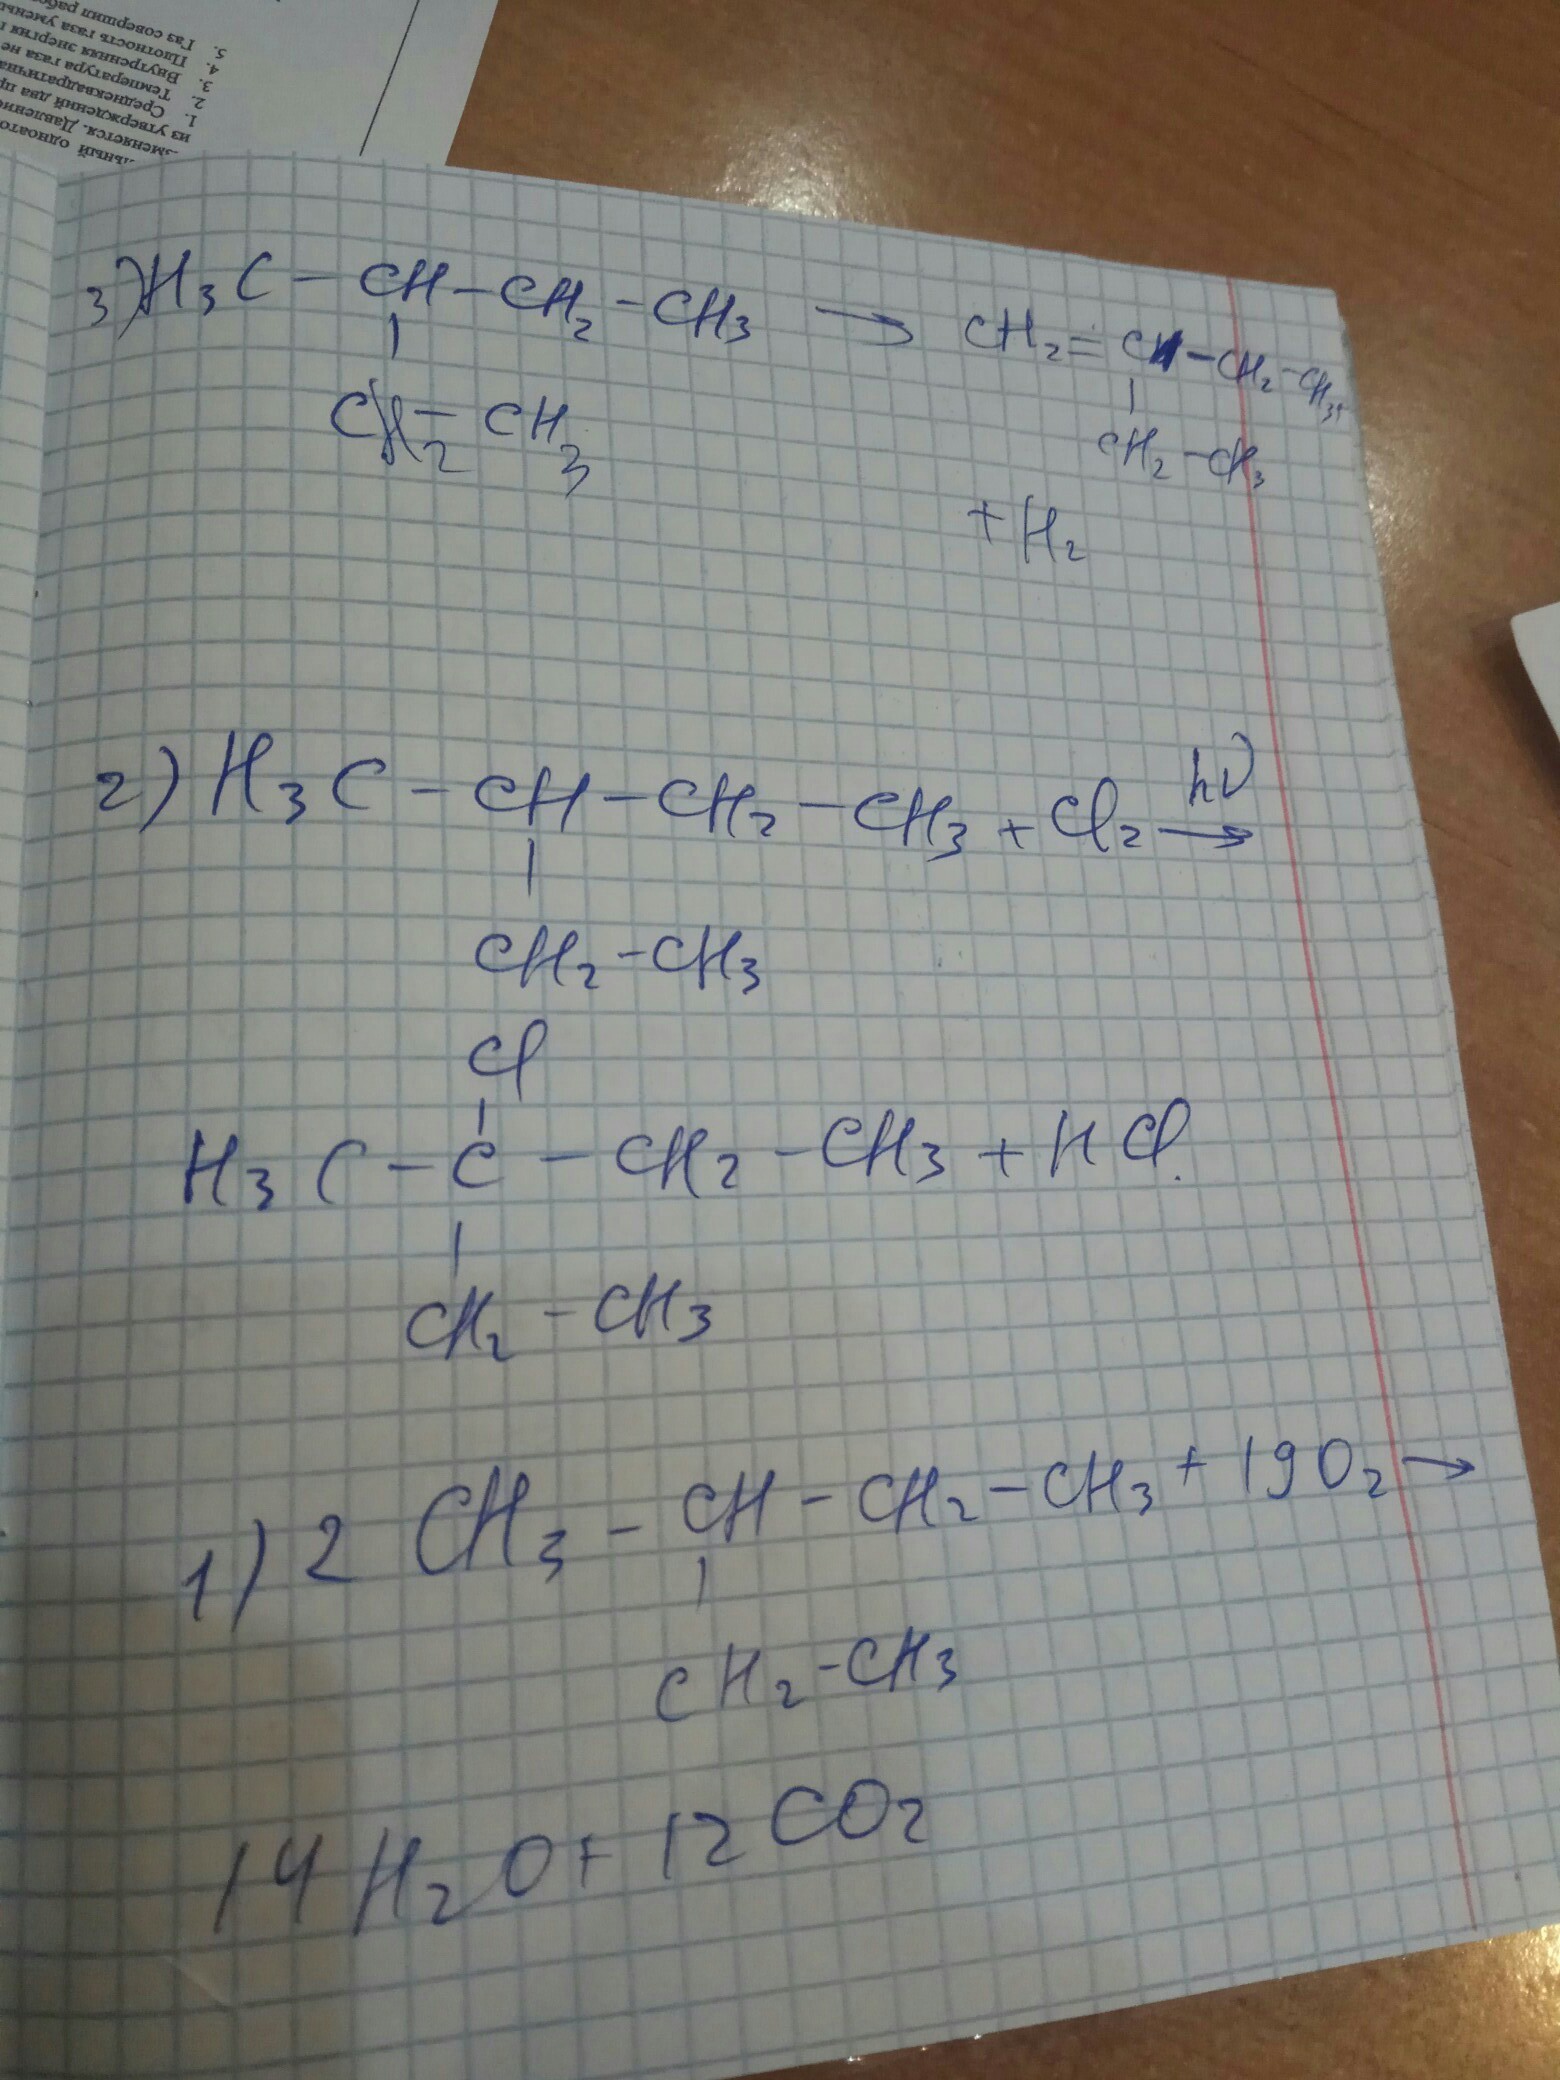 льный одноато
зменяется. Давление
из утверждений два пр
1. Среднеквадратична
2. Температура газа не
3. Внутренняя энергия
4. Плотность газа умень
5. Газ совершил рабо
3) H₃C - CH - CH₂ - CH₃ → CH₂ = CH - CH₂ - CH₃ +
|
|
CH₂ - CH₃
CH₂ - CH₃
+ H₂
2) H₃C - CH - CH₂ - CH₃ + Cl₂ hν →
|
CH₂ - CH₃
Cl
|
H₃C - C - CH₂ - CH₃ + HCl.
|
CH₂ - CH₃
1) 2 CH₃ - CH - CH₂ - CH₃ + 19O₂ →
|
CH₂ - CH₃
14H₂O + 12CO₂